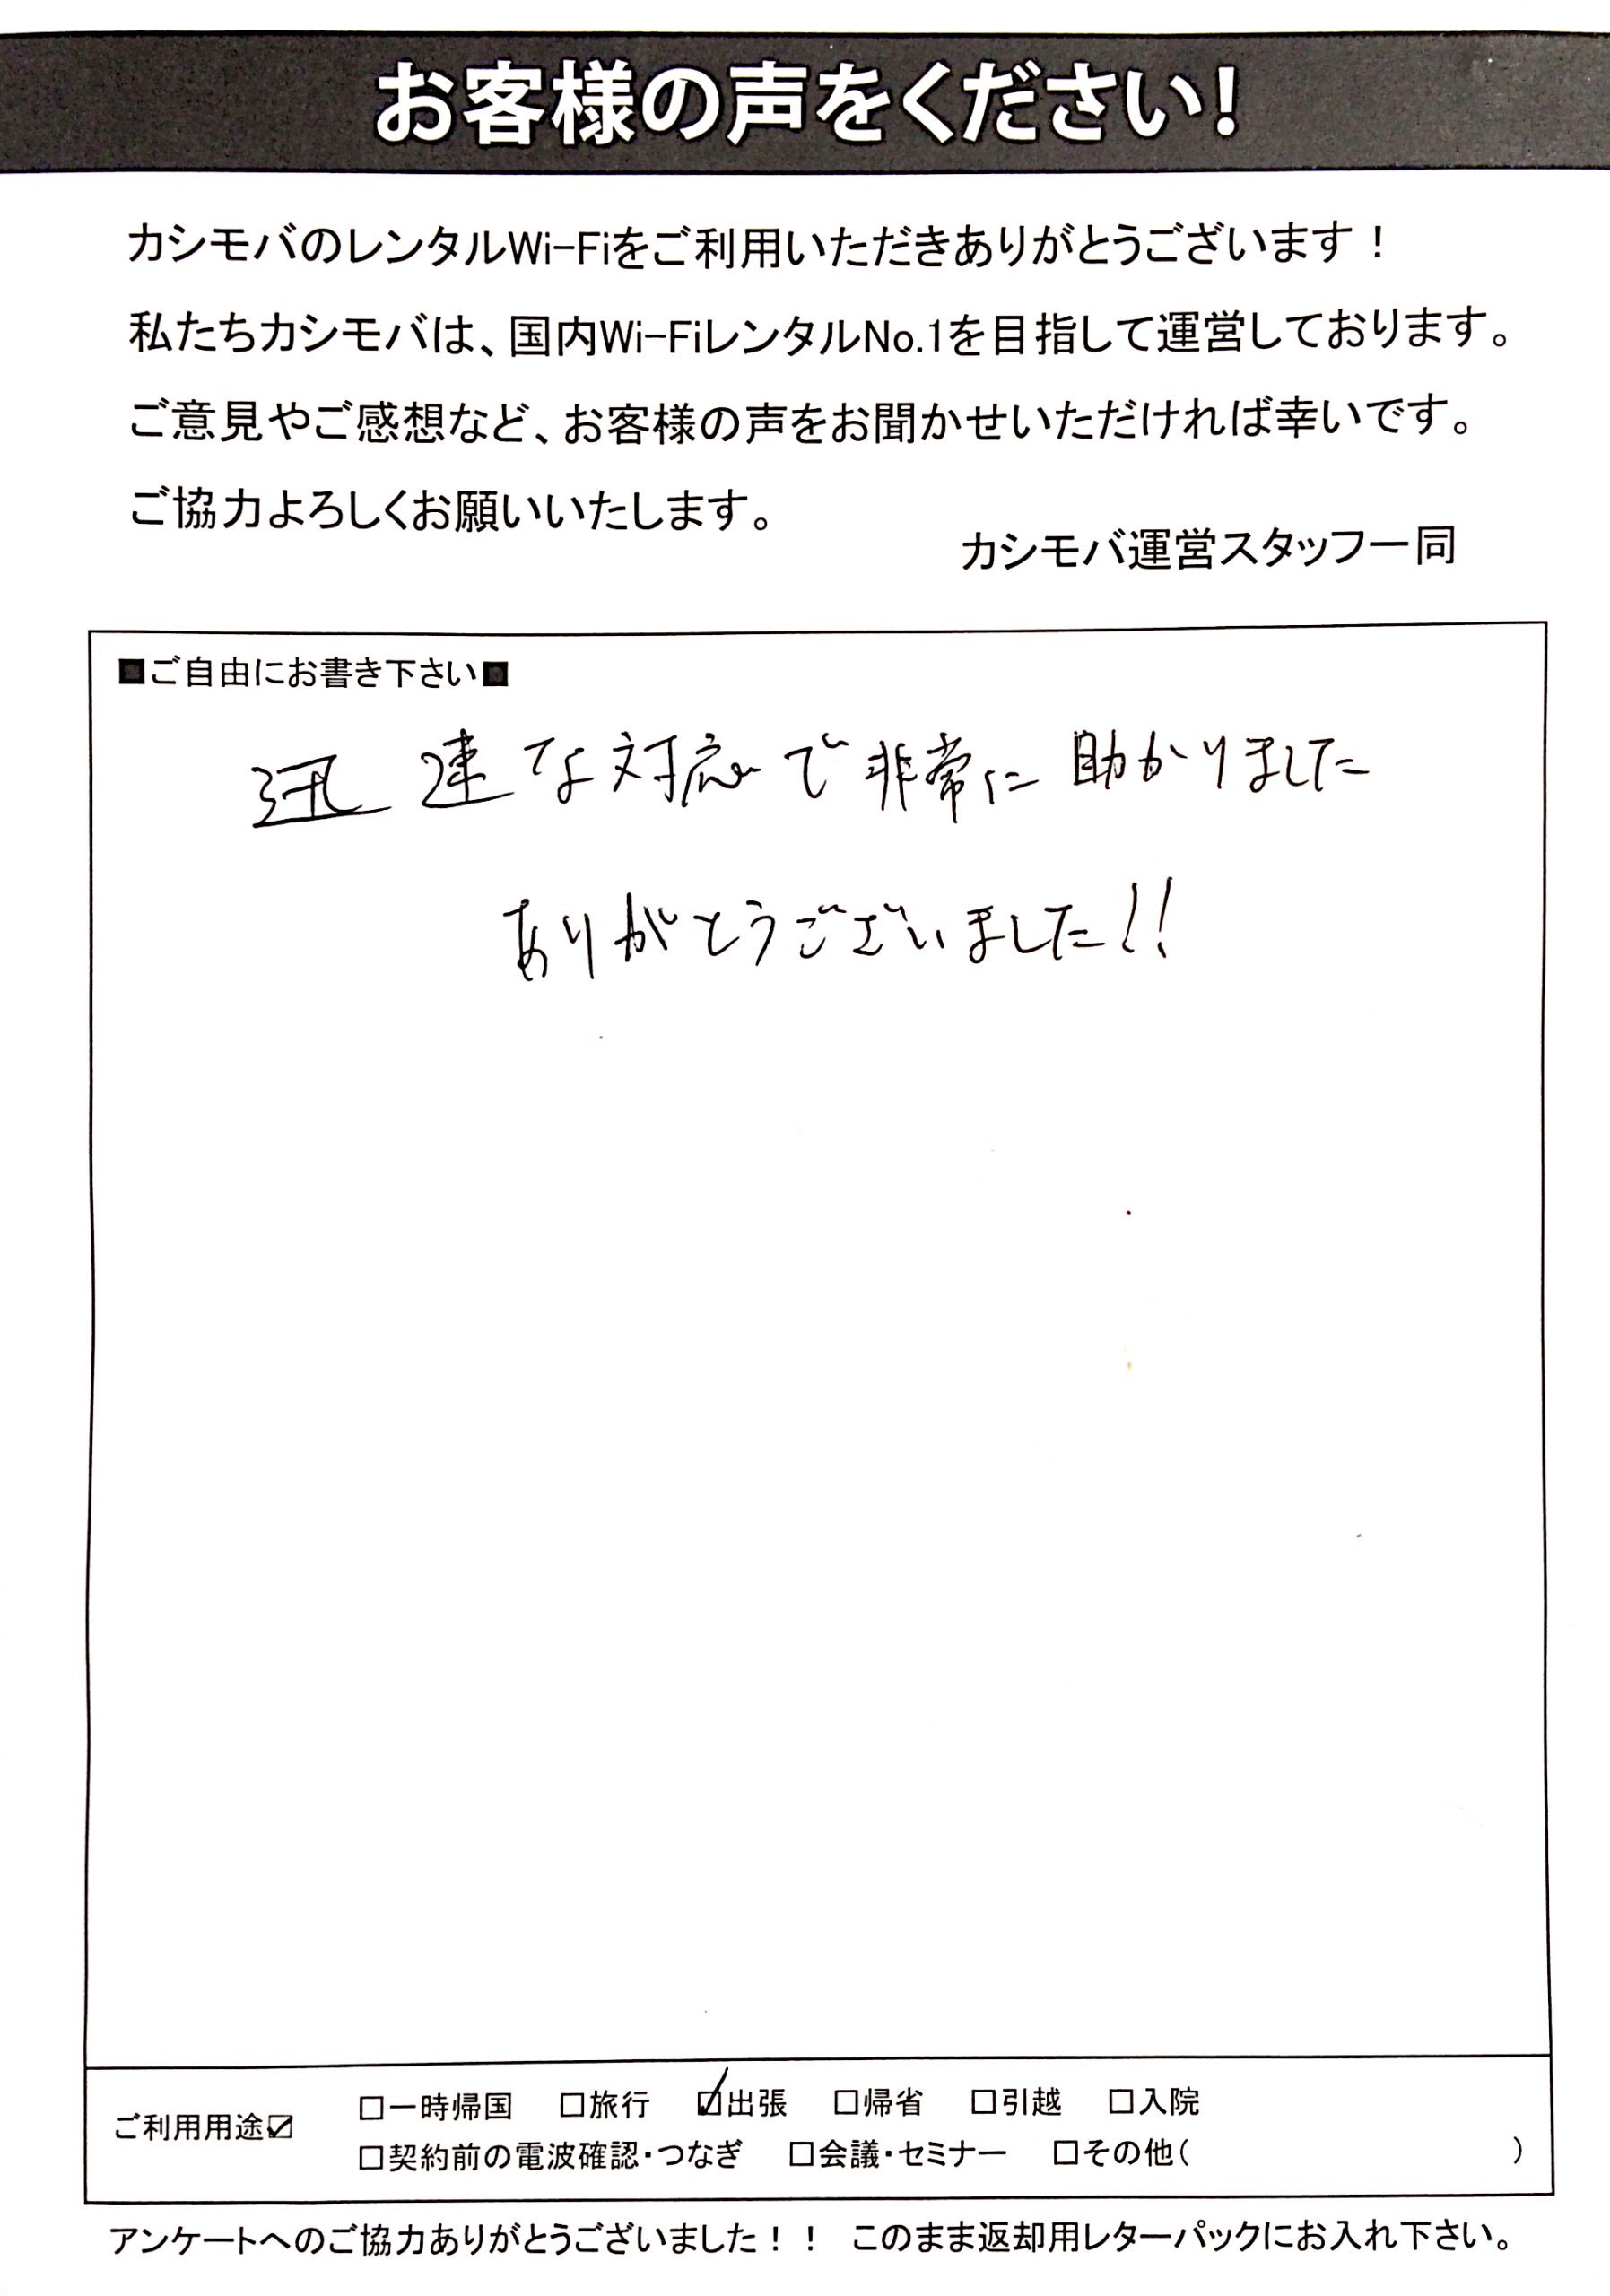 お客様の声をください!
カシモバのレンタルWi-Fiをご利用いただきありがとうございます！
私たちカシモバは、国内Wi-FiレンタルNo.1を目指して運営しております。
ご意見やご感想など、お客様の声をお聞かせいただければ幸いです。
ご協力よろしくお願いいたします。
カシモバ運営スタッフ一同
■ご自由にお書き下さい■
迅速な対応で非常に助かりました
ありがとうございました!!
ご利用用途☑
□一時帰国 □旅行 ☑出張 □帰省 □引越 □入院
□契約前の電波確認・つなぎ □会議・セミナー □その他( )
アンケートへのご協力ありがとうございました！！ このまま返却用レターパックにお入れ下さい。